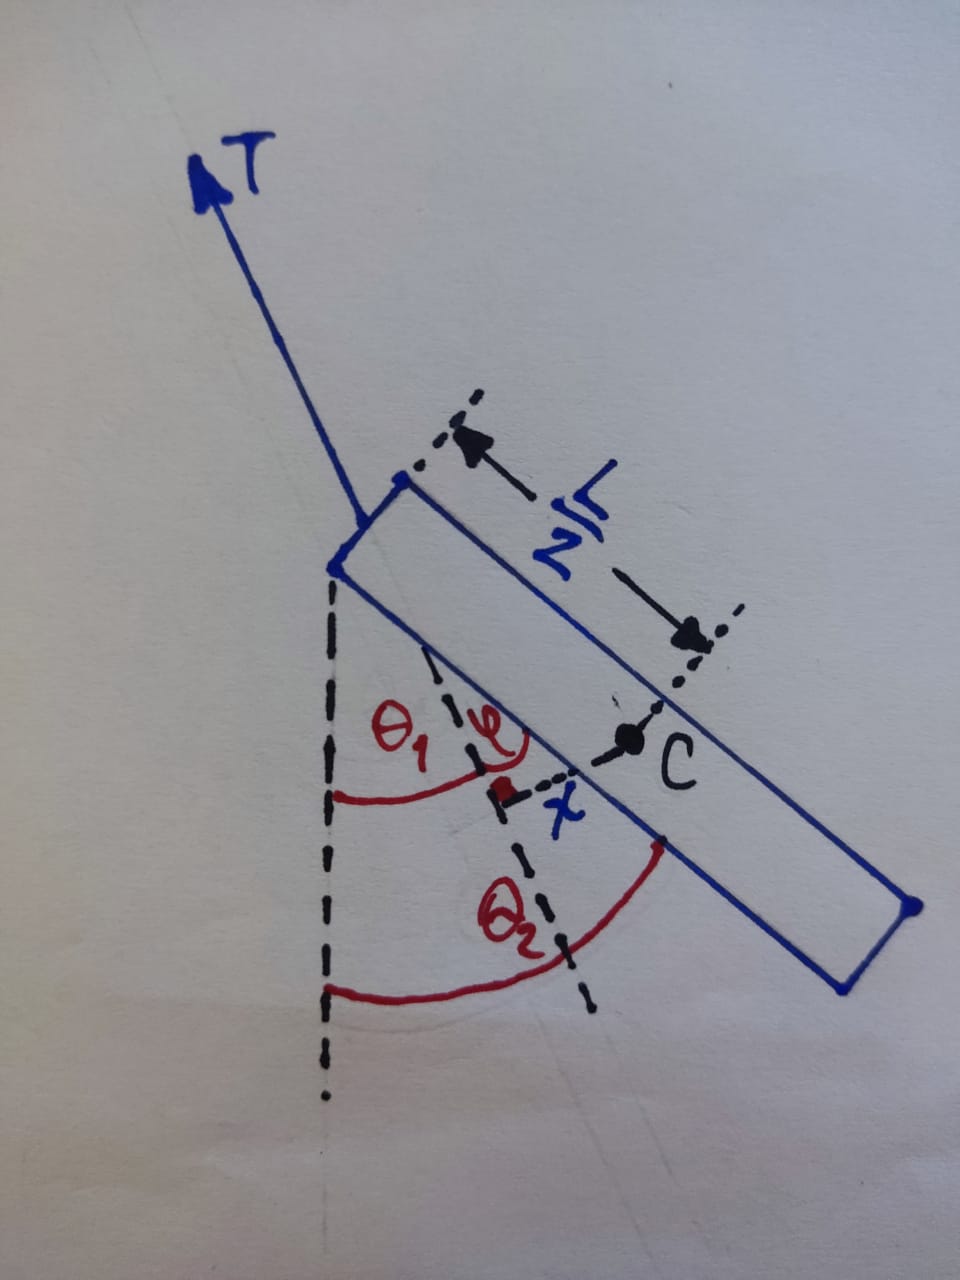 T
L
2
θ₁
φ
C
x
θ₂